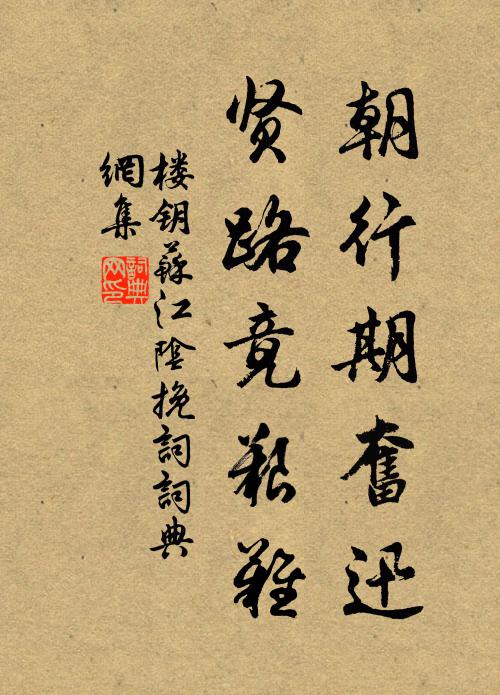 朝行期奮迅
贤路竟艱難
楼钥蘇江陰挽詞詞典
網集
詞典
网印